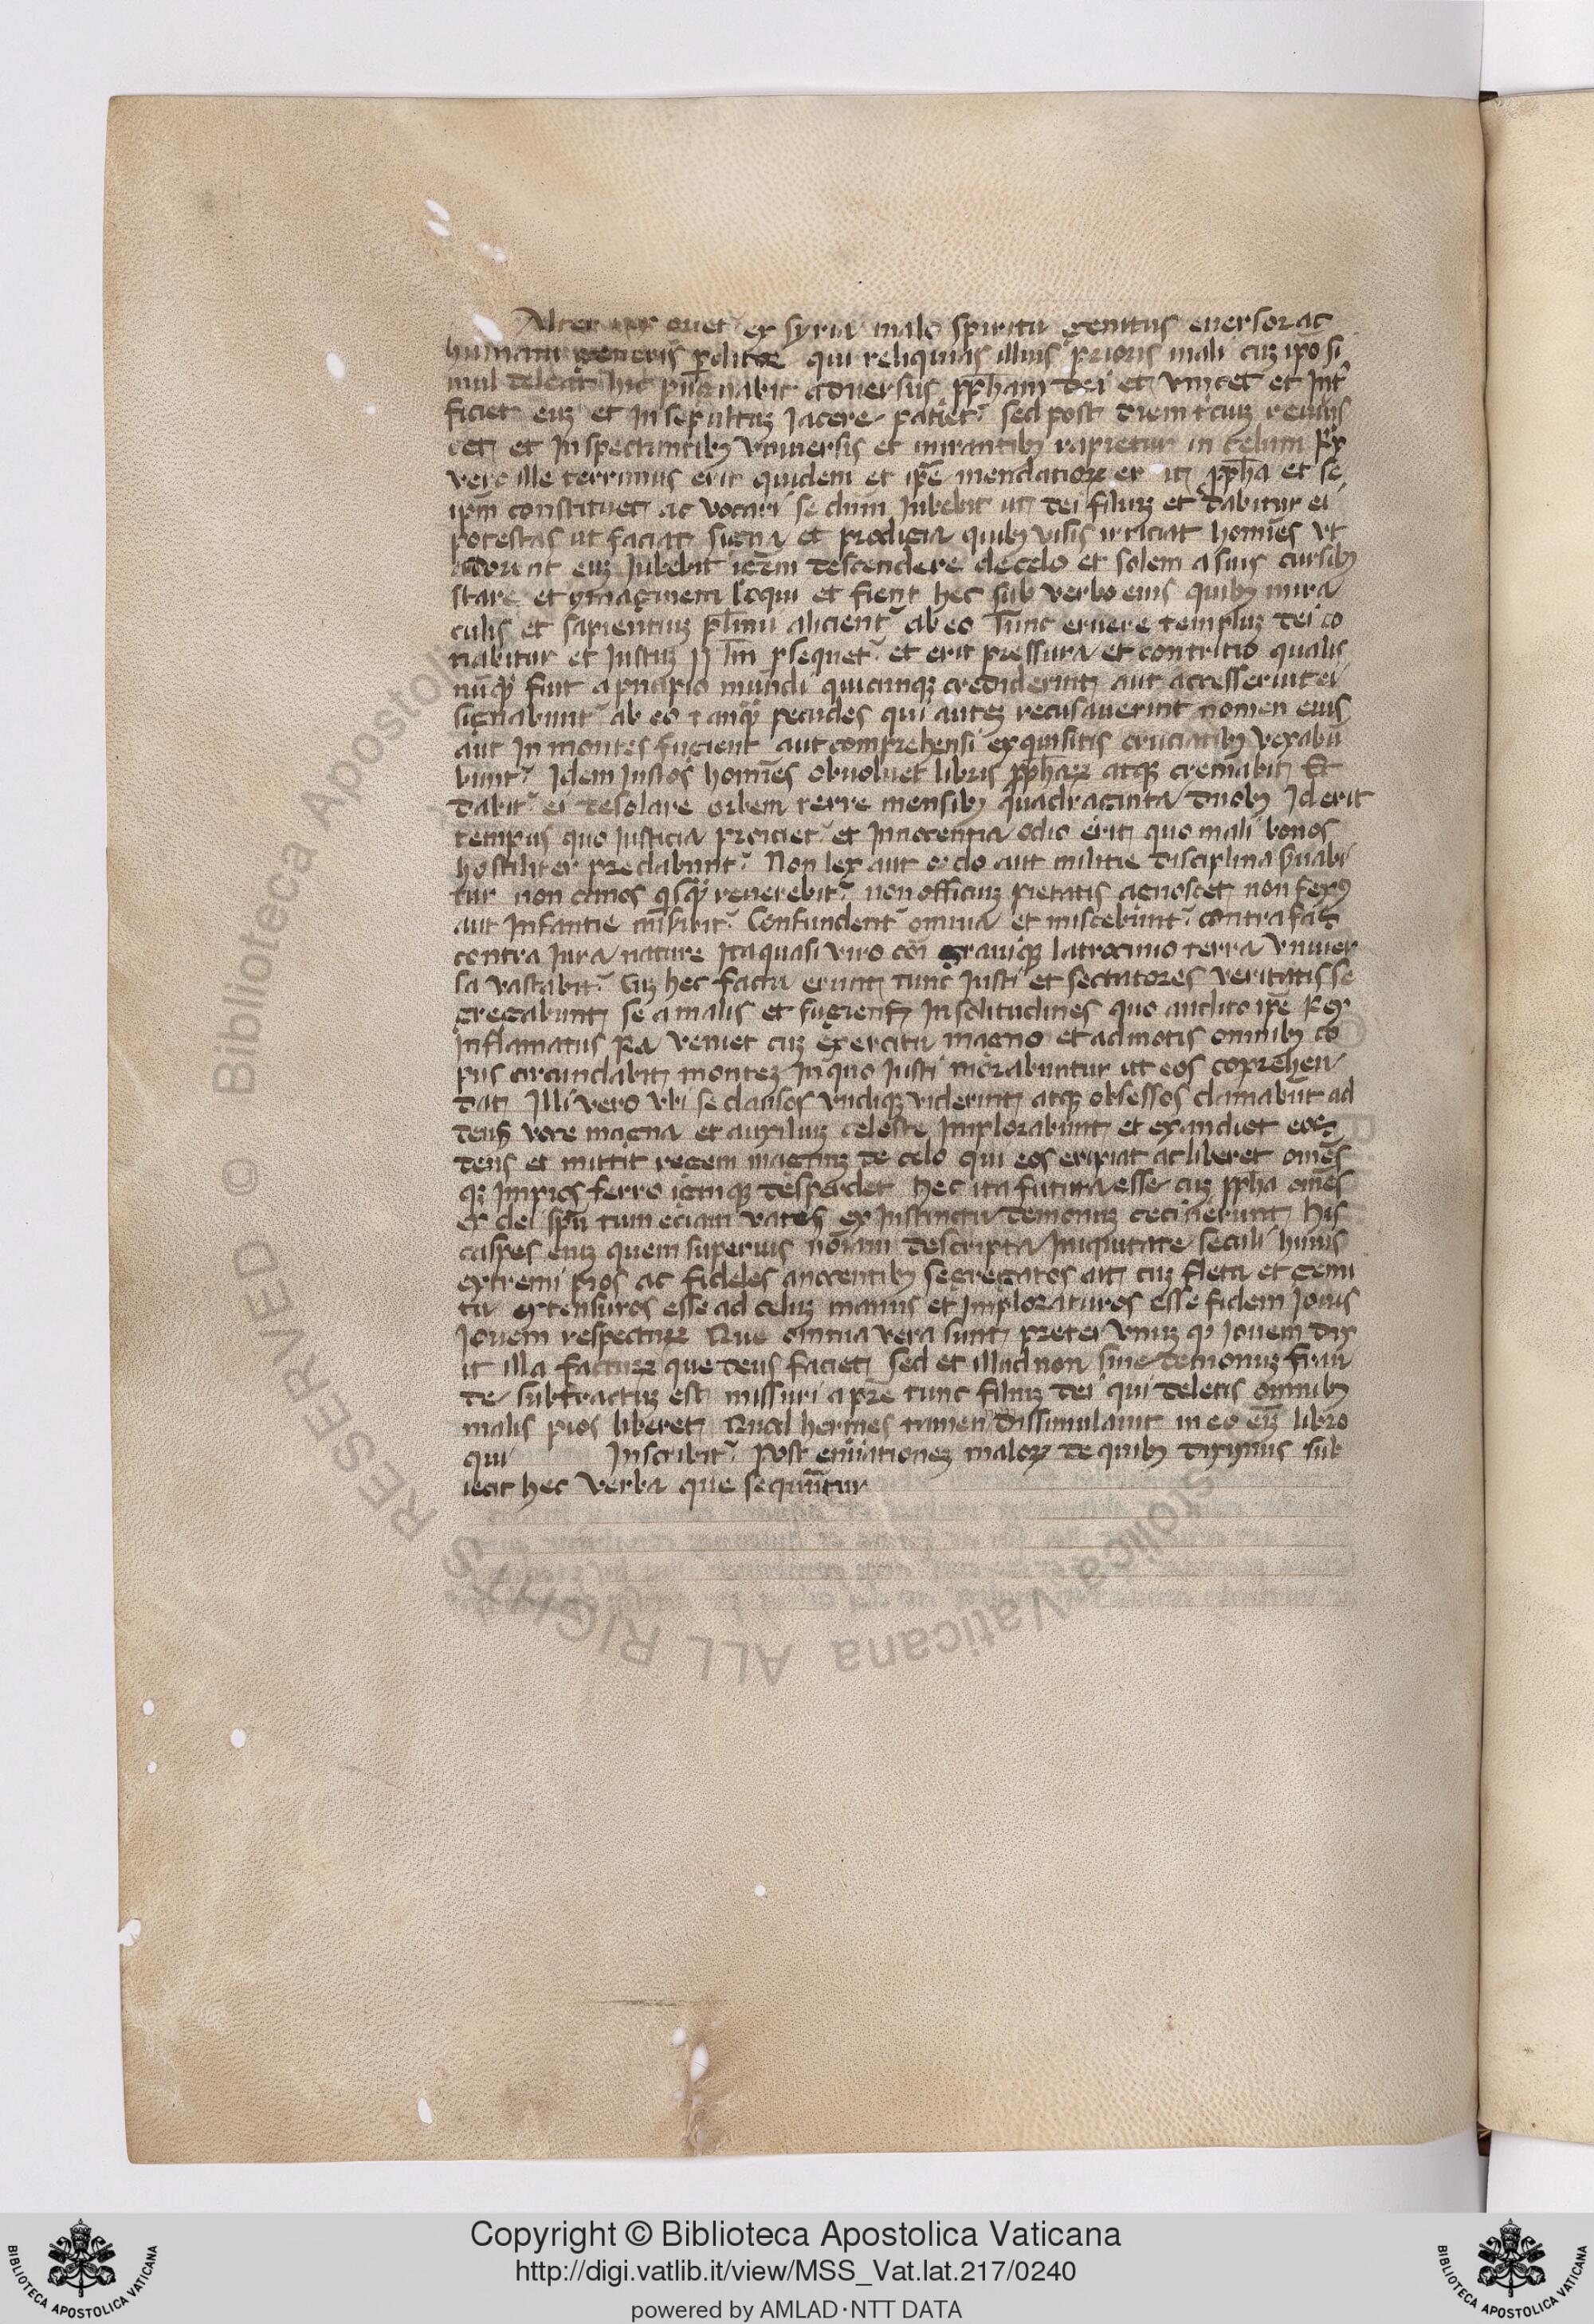 Alter rex oriet᷑ ex syria malo spiritu genitus euersor ac
humani generis ꝑditor qui reliquias illius prioris mali cuꝫ ip̄o si
mul deleat hic pugnabit aduersus ꝓp̄ham dei et vincet et Int᷑
ficiet euꝫ et Insepultuꝫ Iacere patiet᷑ sed post diem t̓ciuꝫ reuiuis
cet et Inspectantibꝫ vniuersis et mirantibꝫ rapietur in celum Rex
vero ille terrimus erit quidem et ip̄e mendatioꝝ ꝓp̄ha et se
ip̄m constituet ac vocari se dīnī Iubebit ut dei filiuꝫ et dabitur ei
potestas ut faciat signa et prodigia quibꝫ visis irriciat homīes vt
adorent euꝫ Iubebit ignem descendere de celo et solem a suis cursibꝫ
stare et ymaginem loqui et fient hec sub verbo eius quibꝫ mira
culis et sapientiuꝫ pl̄imi alicient᷑ ab eo Tunc eruere templuꝫ dei co
nabitur et Iustuꝫ pl̄m ꝑsequet᷑ et erit pressura et contritio qualis
nūqꝫ fuit a pͥncipio mundi quicunqꝫ crediderint aut accesserint ei
signabunt᷑ ab eo tanqꝫ pecudes qui auteꝫ recusauerint nomen eius
aut In montes fugient aut comprehensi exquisitis cruciatibꝫ vexabū
bunt᷑ Idem Iustos homīes obuoluet libris ꝓp̄haꝝ atqꝫ cremabit Et
dabit᷑ ei desolare orbem terre mensibꝫ quadraginta duobꝫ Id erit
tempus quo Iusticia proiciet᷑ et Innocentia odio erit quo mali bonos
hostiliter predabunt᷑ Non lex aut ordo aut militie disciplina ẜuabi
tur non canos qͥsqꝫ reuerebit᷑ non officiuꝫ pietatis agnoscet non sexꝰ
aut Infantie miẜebit᷑ Confundent᷑ omnia et miscebunt᷑ contra fas
contra Iura nature Ita quasi vno cōi grauiqꝫ latrocinio terra vniuer
sa vastabit᷑ Cuꝫ hec facta erunt tunc Iusti et sectatores veritatis se
gregabunt se a malis et fugient In solitudines quo audito ip̄e Rex
Inflamatus Ira veniet cuꝫ exercitu magno et admotis omnibꝫ co
piis circundabit monteꝫ In quo Iusti morabuntur ut eos coprehen
dat Illi vero vbi se clausos vndiqꝫ viderint atqꝫ obsessos clamabūt ad
deuꝫ voce magna et auxiliuꝫ celeste Implorabunt et exaudiet eos
deus et mittit regem magnuꝫ de celo qui eos eripiat ac liberet omēs
qꝫ Impios ferro igniqꝫ desperdet hec ita futura esse cuꝫ ꝓp̄ha omēs
ex dei sp̄u tum eciam vates ex Instinctu demonuꝫ cecinerunt his
taspes eniꝫ quem superius noīaui descripta Iniquitate seculi huius
extremi pios ac fideles anocentibꝫ segregatos ait cuꝫ fletu et gemi
tu extensuros esse ad celuꝫ manus et Imploraturos esse fidem Iouis
Iouem respectuꝝ Que omnia vera sunt preter vnuꝫ qꝫ Iouem dix
it illa factuꝝ que deus faciet Sed et illud non sine demonuꝫ frau
de subtractuꝫ est missuri a pr̄e tunc filiuꝫ dei qui deletis omnibꝫ
malis pios liberet Quod hermes tamen dissimulauit in eo eīꝫ libro
qui Inscribit᷑ Post enūationeꝫ maloꝝ de quibꝫ diximus sub
iecit hec verba que sequūtur
Copyright © Biblioteca Apostolica Vaticana
http://digi.vatlib.it/view/MSS_Vat.lat.217/0240
powered by AMLAD·NTT DATA